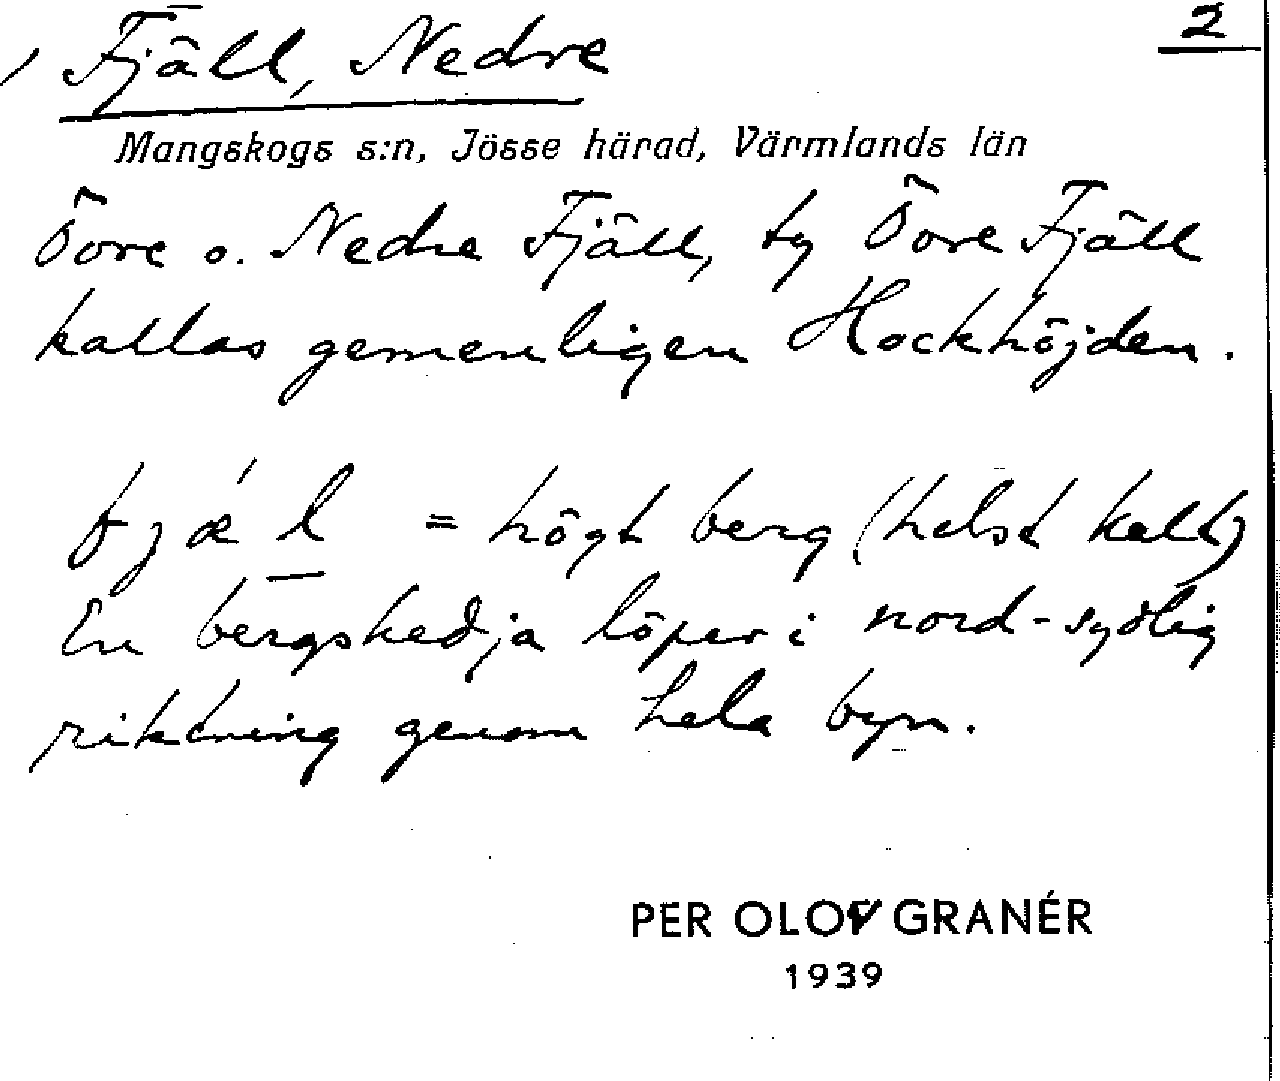 Fjäll, Nedre
2
Mangskogs s:n, Jösse härad, Värmlands län
Övre o. Nedre Fjäll, ty Övre Fjäll
kallas gemenligen Hockhöjden.
fjǽl = högt berg (helst kalt)
En bergskedja löper i nord-sydlig
riktning genom hela byn.
PER OLOV GRANÉR
1939